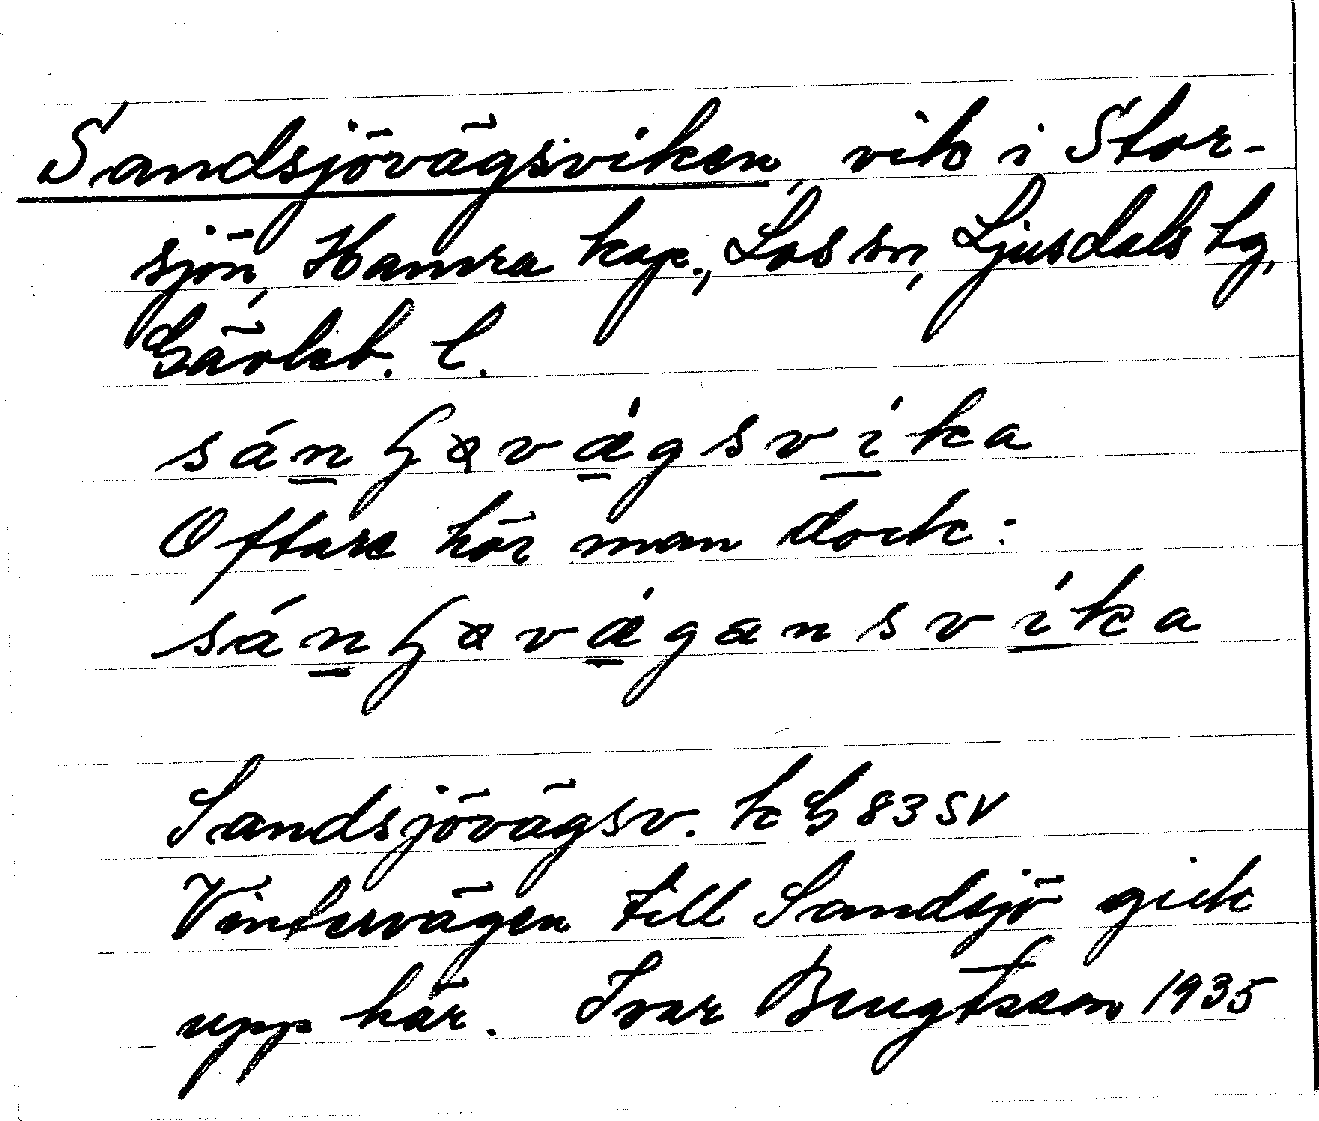 Sandsjövägsviken, vik i Stor-
sjön, Hamra kap., Los sn, Ljusdals tg,
Gävleb. l.
sánʃɷvǽgsvíka
Oftare hör man dock:
sánʃɷvǽgænsvíka
Sandsjövägsv. k G 83 SV
Vintervägen till Sandsjö gick
upp här. Ivar Bengtsson 1935